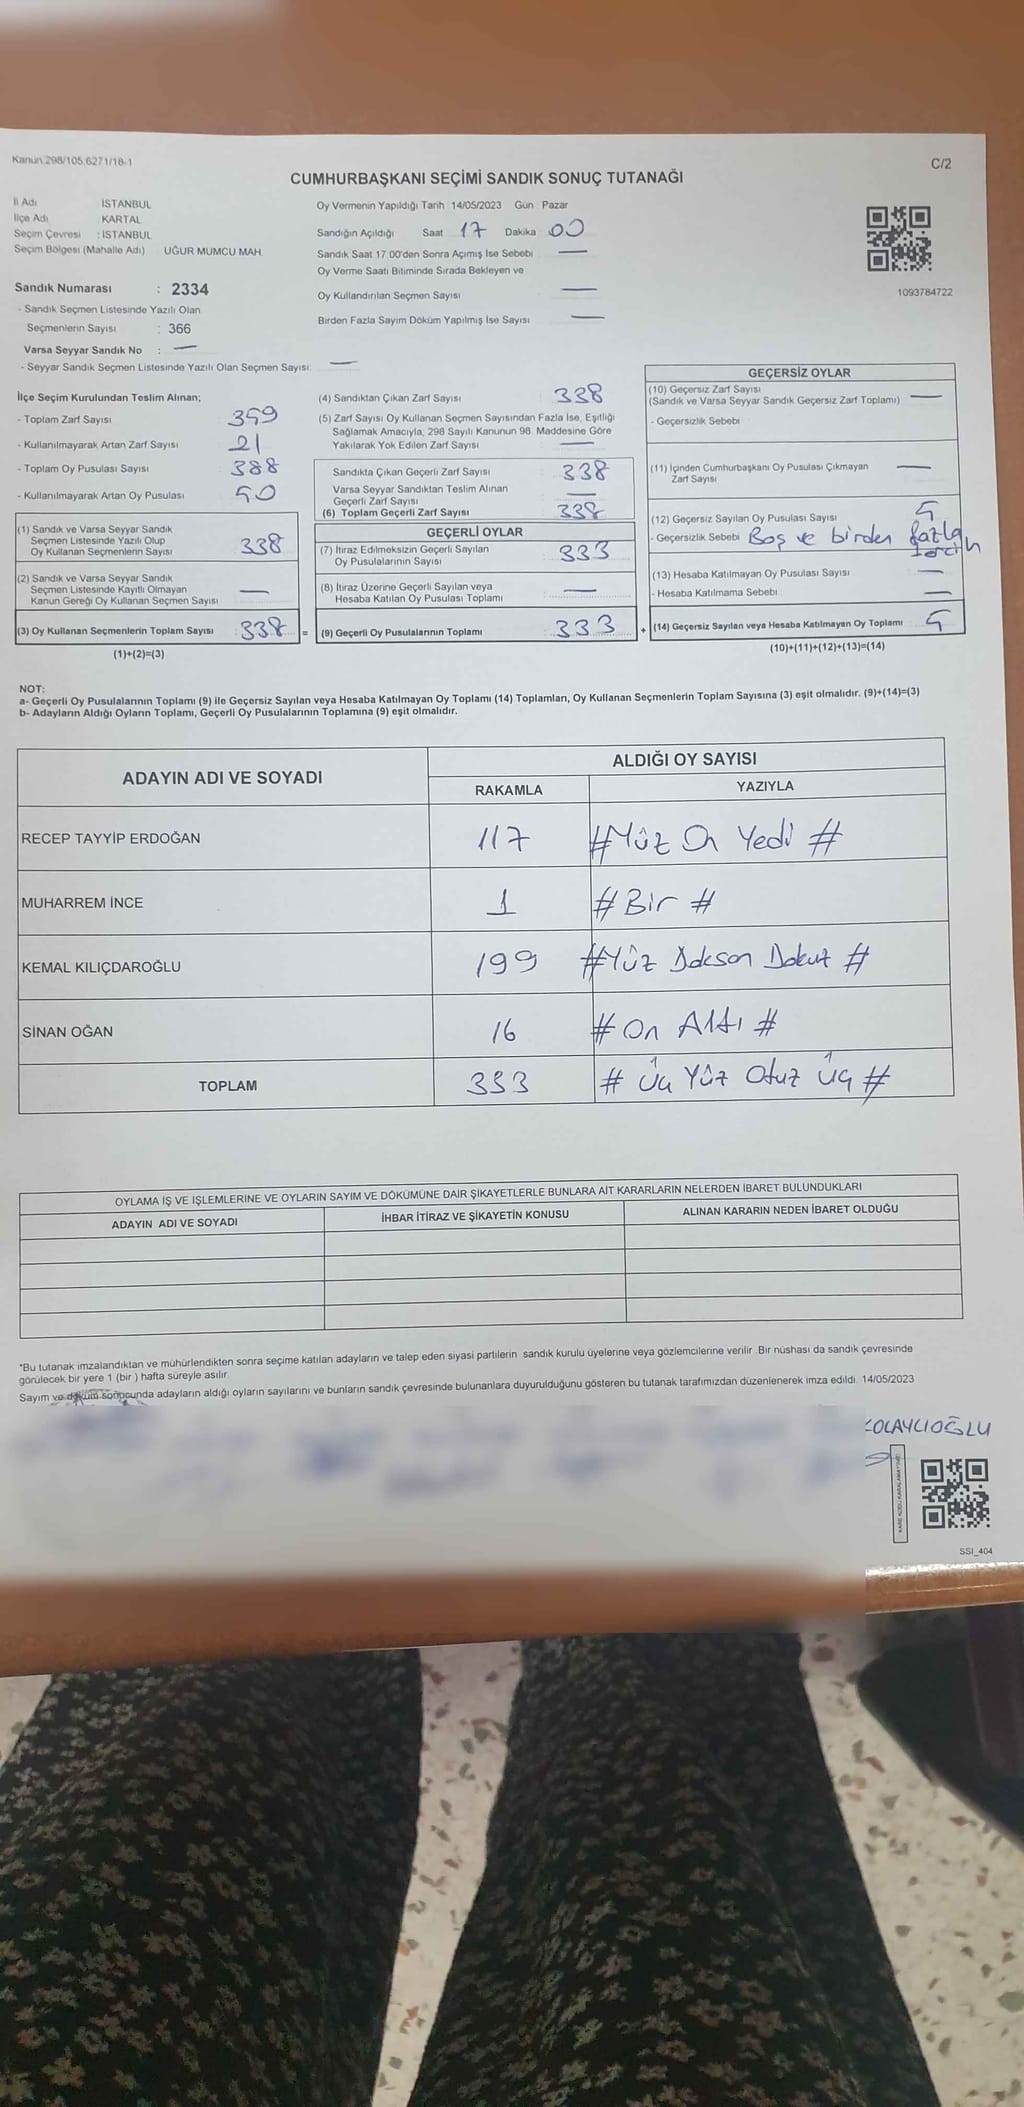 Kanun.298/105,6271/18-1
C/2
CUMHURBAŞKANI SEÇİMİ SANDIK SONUÇ TUTANAĞI
İl Adı İSTANBUL
İlçe Adı KARTAL
Seçim Çevresi : İSTANBUL
Seçim Bölgesi (Mahalle Adı) UĞUR MUMCU MAH.
Sandık Numarası : 2334
- Sandık Seçmen Listesinde Yazılı Olan
Seçmenlerin Sayısı : 366
Varsa Seyyar Sandık No : —
- Seyyar Sandık Seçmen Listesinde Yazılı Olan Seçmen Sayısı: —
Oy Vermenin Yapıldığı Tarih : 14/05/2023 Gün : Pazar
Sandığın Açıldığı Saat 17 Dakika 00
Sandık Saat 17.00'den Sonra Açımış İse Sebebi —
Oy Verme Saati Bitiminde Sırada Bekleyen ve
Oy Kullandırılan Seçmen Sayısı —
Birden Fazla Sayım Döküm Yapılmış İse Sayısı —
1093784722
İlçe Seçim Kurulundan Teslim Alınan;
- Toplam Zarf Sayısı 359
- Kullanılmayarak Artan Zarf Sayısı 21
- Toplam Oy Pusulası Sayısı 388
- Kullanılmayarak Artan Oy Pusulası 50
(1) Sandık ve Varsa Seyyar Sandık
Seçmen Listesinde Yazılı Olup
Oy Kullanan Seçmenlerin Sayısı 338
(2) Sandık ve Varsa Seyyar Sandık
Seçmen Listesinde Kayıtlı Olmayan
Kanun Gereği Oy Kullanan Seçmen Sayısı —
(3) Oy Kullanan Seçmenlerin Toplam Sayısı 338 =
(1)+(2)=(3)
(4) Sandıktan Çıkan Zarf Sayısı 338
(5) Zarf Sayısı Oy Kullanan Seçmen Sayısından Fazla İse, Eşitliği
Sağlamak Amacıyla; 298 Sayılı Kanunun 98. Maddesine Göre
Yakılarak Yok Edilen Zarf Sayısı —
Sandıkta Çıkan Geçerli Zarf Sayısı 338
Varsa Seyyar Sandıktan Teslim Alınan
Geçerli Zarf Sayısı —
(6) Toplam Geçerli Zarf Sayısı 338
GEÇERLİ OYLAR
(7) İtiraz Edilmeksizin Geçerli Sayılan
Oy Pusulalarının Sayısı 333
(8) İtiraz Üzerine Geçerli Sayılan veya
Hesaba Katılan Oy Pusulası Toplamı —
(9) Geçerli Oy Pusulalarının Toplamı 333 +
GEÇERSİZ OYLAR
(10) Geçersiz Zarf Sayısı
(Sandık ve Varsa Seyyar Sandık Geçersiz Zarf Toplamı) —
- Geçersizlik Sebebi
(11) İçinden Cumhurbaşkanı Oy Pusulası Çıkmayan
Zarf Sayısı —
(12) Geçersiz Sayılan Oy Pusulası Sayısı 5
- Geçersizlik Sebebi Boş ve birden fazla
tercih
(13) Hesaba Katılmayan Oy Pusulası Sayısı —
- Hesaba Katılmama Sebebi —
(14) Geçersiz Sayılan veya Hesaba Katılmayan Oy Toplamı 5
(10)+(11)+(12)+(13)=(14)
NOT:
a- Geçerli Oy Pusulalarının Toplamı (9) ile Geçersiz Sayılan veya Hesaba Katılmayan Oy Toplamı (14) Toplamları, Oy Kullanan Seçmenlerin Toplam Sayısına (3) eşit olmalıdır. (9)+(14)=(3)
b- Adayların Aldığı Oyların Toplamı, Geçerli Oy Pusulalarının Toplamına (9) eşit olmalıdır.
ADAYIN ADI VE SOYADI
ALDIĞI OY SAYISI
RAKAMLA YAZIYLA
RECEP TAYYİP ERDOĞAN 117 #Yüz On Yedi #
MUHARREM İNCE 1 # Bir #
KEMAL KILIÇDAROĞLU 199 #Yüz Doksan Dokuz #
SİNAN OĞAN 16 # On Altı #
TOPLAM 333 # Üç Yüz Otuz Üç #
OYLAMA İŞ VE İŞLEMLERİNE VE OYLARIN SAYIM VE DÖKÜMÜNE DAİR ŞİKAYETLERLE BUNLARA AİT KARARLARIN NELERDEN İBARET BULUNDUKLARI
ADAYIN ADI VE SOYADI İHBAR İTİRAZ VE ŞİKAYETİN KONUSU ALINAN KARARIN NEDEN İBARET OLDUĞU
*Bu tutanak imzalandıktan ve mühürlendikten sonra seçime katılan adayların ve talep eden siyasi partilerin sandık kurulu üyelerine veya gözlemcilerine verilir. Bir nüshası da sandık çevresinde
görülecek bir yere 1 (bir ) hafta süreyle asılır.
Sayım ve döküm sonucunda adayların aldığı oyların sayılarını ve bunların sandık çevresinde bulunanlara duyurulduğunu gösteren bu tutanak tarafımızdan düzenlenerek imza edildi. 14/05/2023
KOLAYLIOĞLU
SSI_404